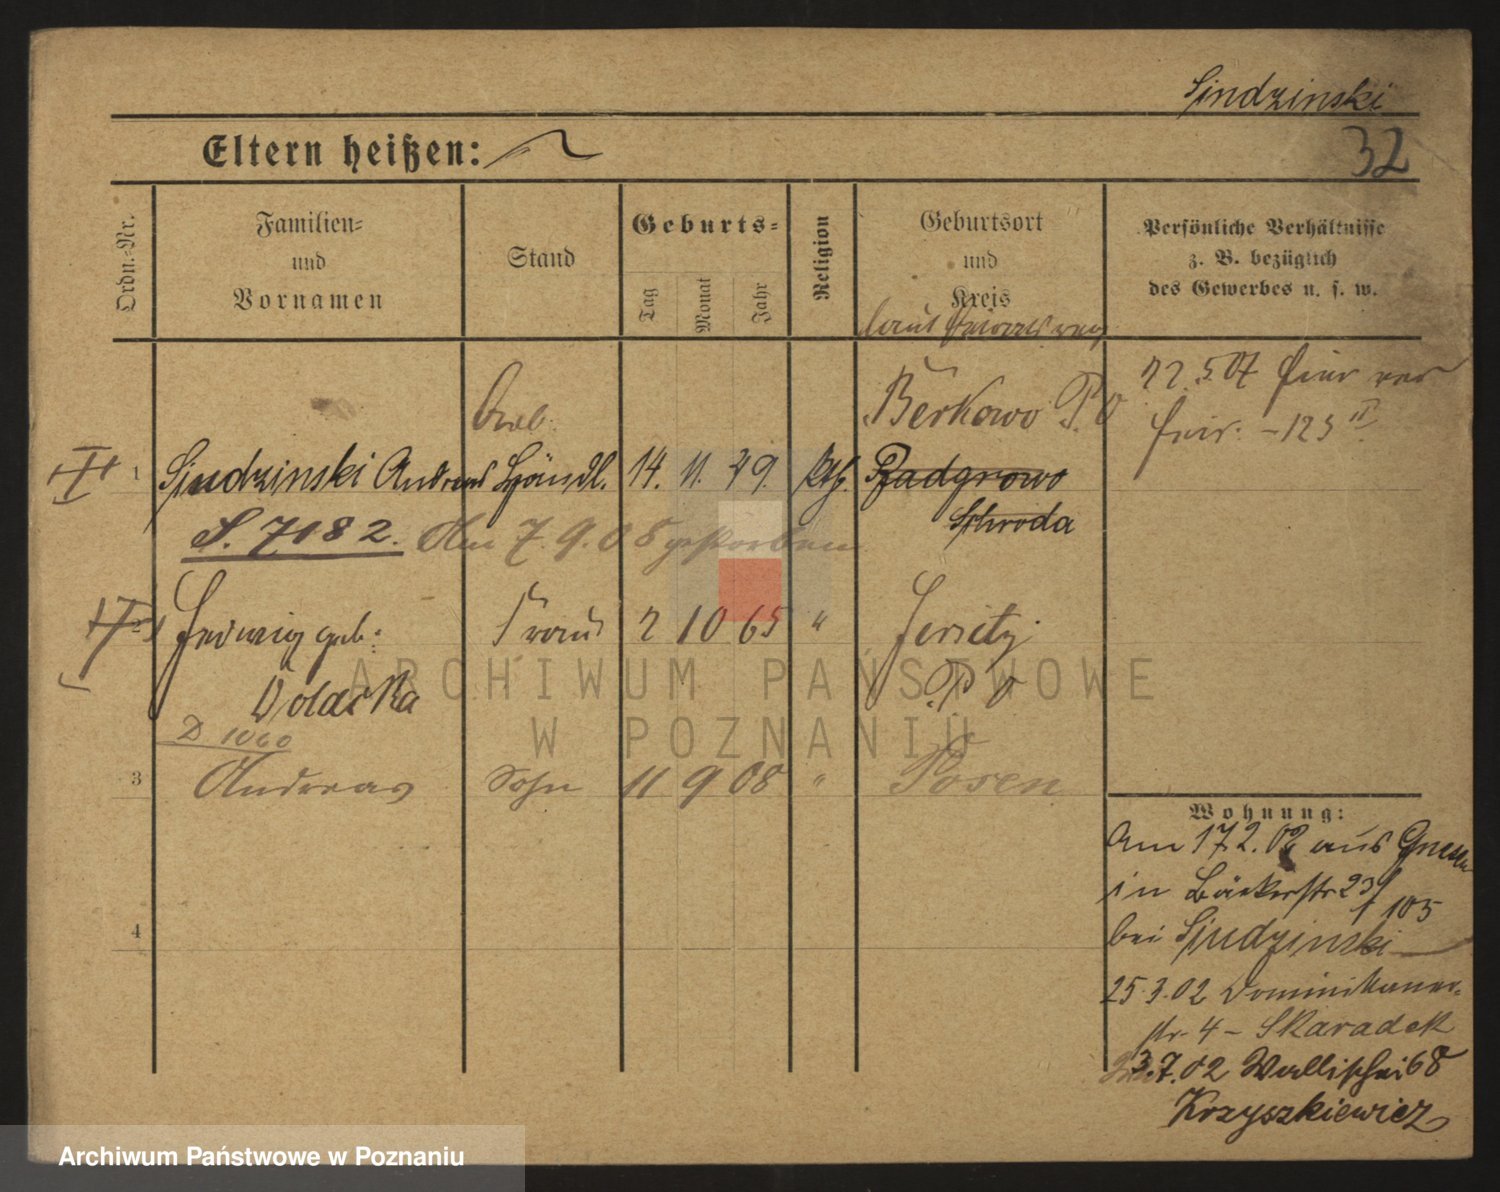 Sindzinski
32
Eltern heißen:
Ordn.-Nr.
Familien-
und
Vornamen
Stand
Geburts-
Tag
Monat
Jahr
Religion
Geburtsort
und
Kreis
Persönliche Verhältnisse
z. B. bezüglich
des Gewerbes u. s. w.
laut
Arb.
Berkowo P. O
22.5.07
1
Sindzinski Andreas Händl. 14. 11. 29. kth. Radgrowo
Schroda
S. 7182. Am 7.9.08 gestorben
2
Hedwig geb: Frau 2 10 65 " Jersitz
Wolarska P O
D 1060
3
Andreas Sohn 11 9 08 " Posen
4
Wohnung:
Am 17.2.02 aus Gnesen
in Bäckerstr 23
105
bei Sindzinski
25.3.02 Dominikaner-
str. 4 - Skaradek
3.7.02 Wallischei 68
Krzyszkiewicz
ARCHIWUM PAŃSTWOWE
W POZNANIU
Archiwum Państwowe w Poznaniu